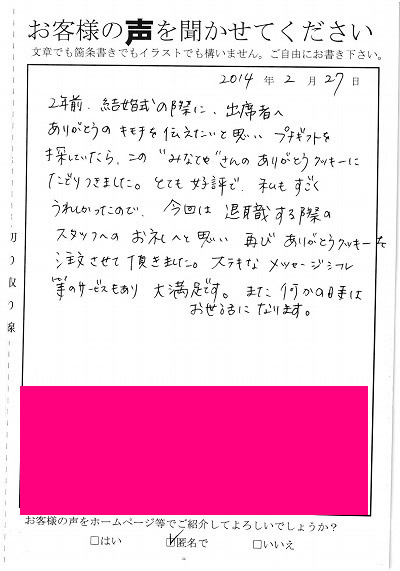 お客様の声を聞かせてください
文章でも箇条書きでもイラストでも構いません。ご自由にお書き下さい。
2014年2月27日
2年前、結婚式の際に、出席者へ
ありがとうのキモチを伝えたいと思い プチギフトを
探していたら、この"みなとや"さんのありがとうクッキーに
たどりつきました。とても好評で、私もすごく
うれしかったので、今回は 退職する際の
スタッフへの お礼へと思い 再び ありがとうクッキーを
注文させて頂きました。ステキな メッセージシール
等のサービスもあり 大満足です。また 何かの時は
お世話になります。
切り取り線
お客様の声をホームページ等でご紹介してよろしいでしょうか？
□はい ☑匿名で □いいえ